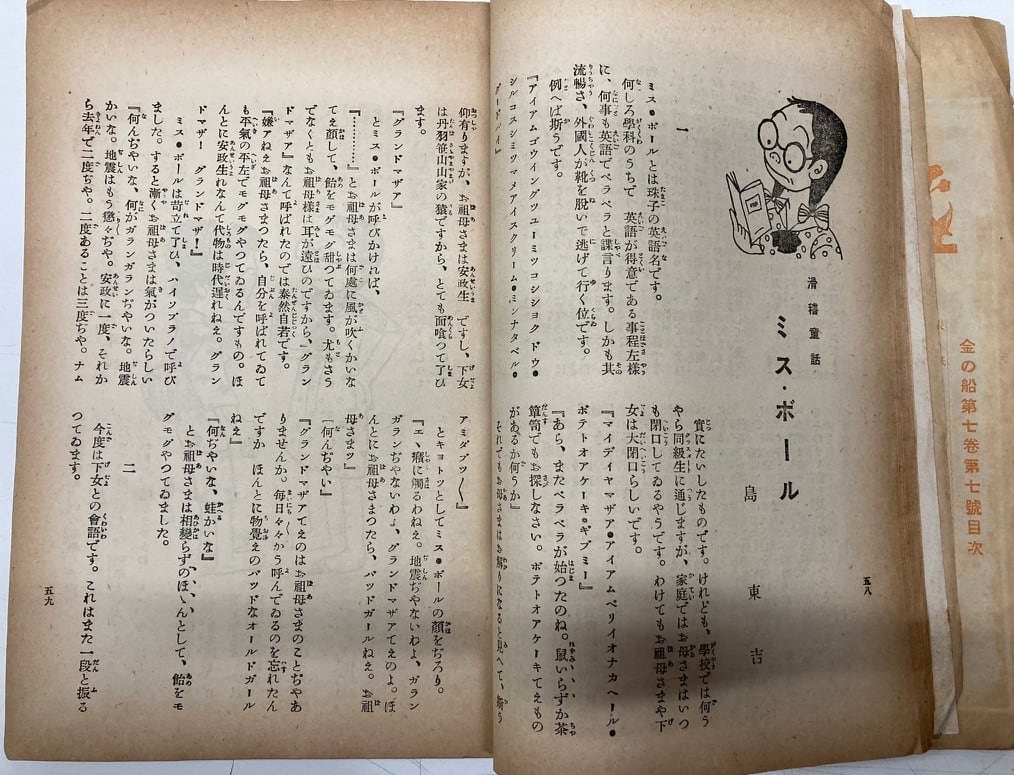 滑稽童話
ミス・ボール
島東吉
一
ミス・ボールとは珠子の英語名です。
何しろ學科のうちで 英語が得意である事程左樣
に、何事も英語でペラペラと諜言ります。しかも其
流暢さ、外國人が靴を脱いで逃げて行く位です。
例へば斯うです。
『アイアムゴウイングツユーミツコシショクドウ・
シルコスシミツマメアイスクリーム・ミンナタベル・
グードバイ』
實にたいしたものです。けれども、學校では何う
やら同級生に通じますが、家庭ではお母さまはいつ
も閉口してゐるやうです。わけてもお祖母さまや下
女は大閉口らしいです。
『マイデイヤマザア・アイアムベリイオナカヘール・
ポテトオアケーキ・ギブミー』
『あら、またペラペラが始つたのね。鼠いらずか茶
簞笥でもお探しなさい。ポテトオアケーキてえもの
があるか何うか』
それでもお母さまはお解りになると見へて、斯う
五八
仰有りますが、お祖母さまは安政生 ですし、下女
は丹羽笹山山家の猿ですから、とても面喰つて了ひ
ます。
『グランドマザア』
とミス・ボールが呼びかければ、
『………』とお祖母さまは何處に風が吹くかいな
てえ顏して、飴をモグモグ甜つてゐます。尤もさう
でなくともお祖母樣は耳が遠ひのですから、『グラン
ドマザア』なんて呼ばれたのでは泰然自若です。
『嫌アねえお祖母さまつたら、自分を呼ばれてゐて
も平氣の平左でモグモグやつてゐるんですもの。ほ
んとに安政生れなんて代物は時代遲れねえ。グラン
ドマザー! グランドマザ!』
ミス・ボールは苛立て了ひ、ハイソプラノで呼び
ました。すると漸くお祖母さまは氣がついたらしい
『何んぢやいな、何がガランガランぢやいな。地震
かいな。地震はもう懲々ぢや。安政に一度、それか
ら去年で二度ぢや。二度あることは三度ぢや。ナム
アミダブツ〱』
とキヨトツとしてミス・ボールの顏をぢろり。
『エヽ癪に觸るわねえ。地震ぢやないわよ、ガラン
ガランぢやないわよ、グランドマザアてえのよ。ほ
んとにお祖母さまつたら、バッドガールねえ。お祖
母さまツ』
『何んぢやい』
『グランドマザアてえのはお祖母さまのことぢやあ
りませんか。毎日々々かう呼んでゐるのを忘れたん
ですか ほんとに物覺えのバッドなオールドガール
ねえ』
『何ぢやいな、蛙かいな』
とお祖母さまは相變らずのほゝんとして、飴をモ
グモグやつてゐました。
二
今度は下女との會話です。これはまた一段と振る
つてゐます。
五九
金の船第七卷第七號目次